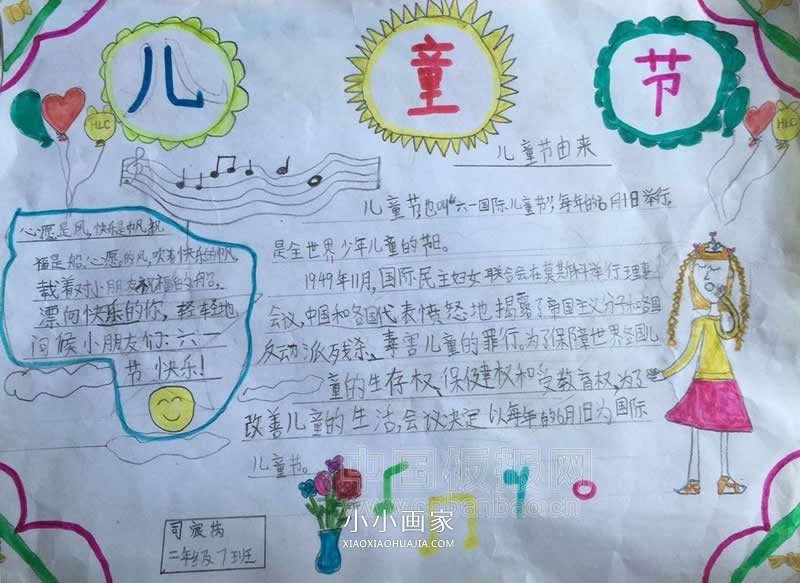 儿 童 节
HLC
HLC
儿童节由来
儿童节也叫“六一国际儿童节”,每年的6月1日举行,
是全世界少年儿童的节日。
1949年11月,国际民主妇女联合会在莫斯科举行理事
会议,中国和各国代表愤怒地揭露了帝国主义分子和各国
反动派残杀、毒害儿童的罪行。为了保障世界各国儿
童的生存权、保健权和受教育权,为了
改善儿童的生活,会议决定以每年的6月1日为国际
儿童节。
心愿是风,快乐是帆,祝
福是船。心愿的风,吹着快乐的帆,
载着对小朋友祝福的船。
漂向快乐的你,轻轻地
问候小朋友们:六一
节快乐!
中国板报网
小小画家
XIAOXIAOHUAJIA.COM
二年级7班